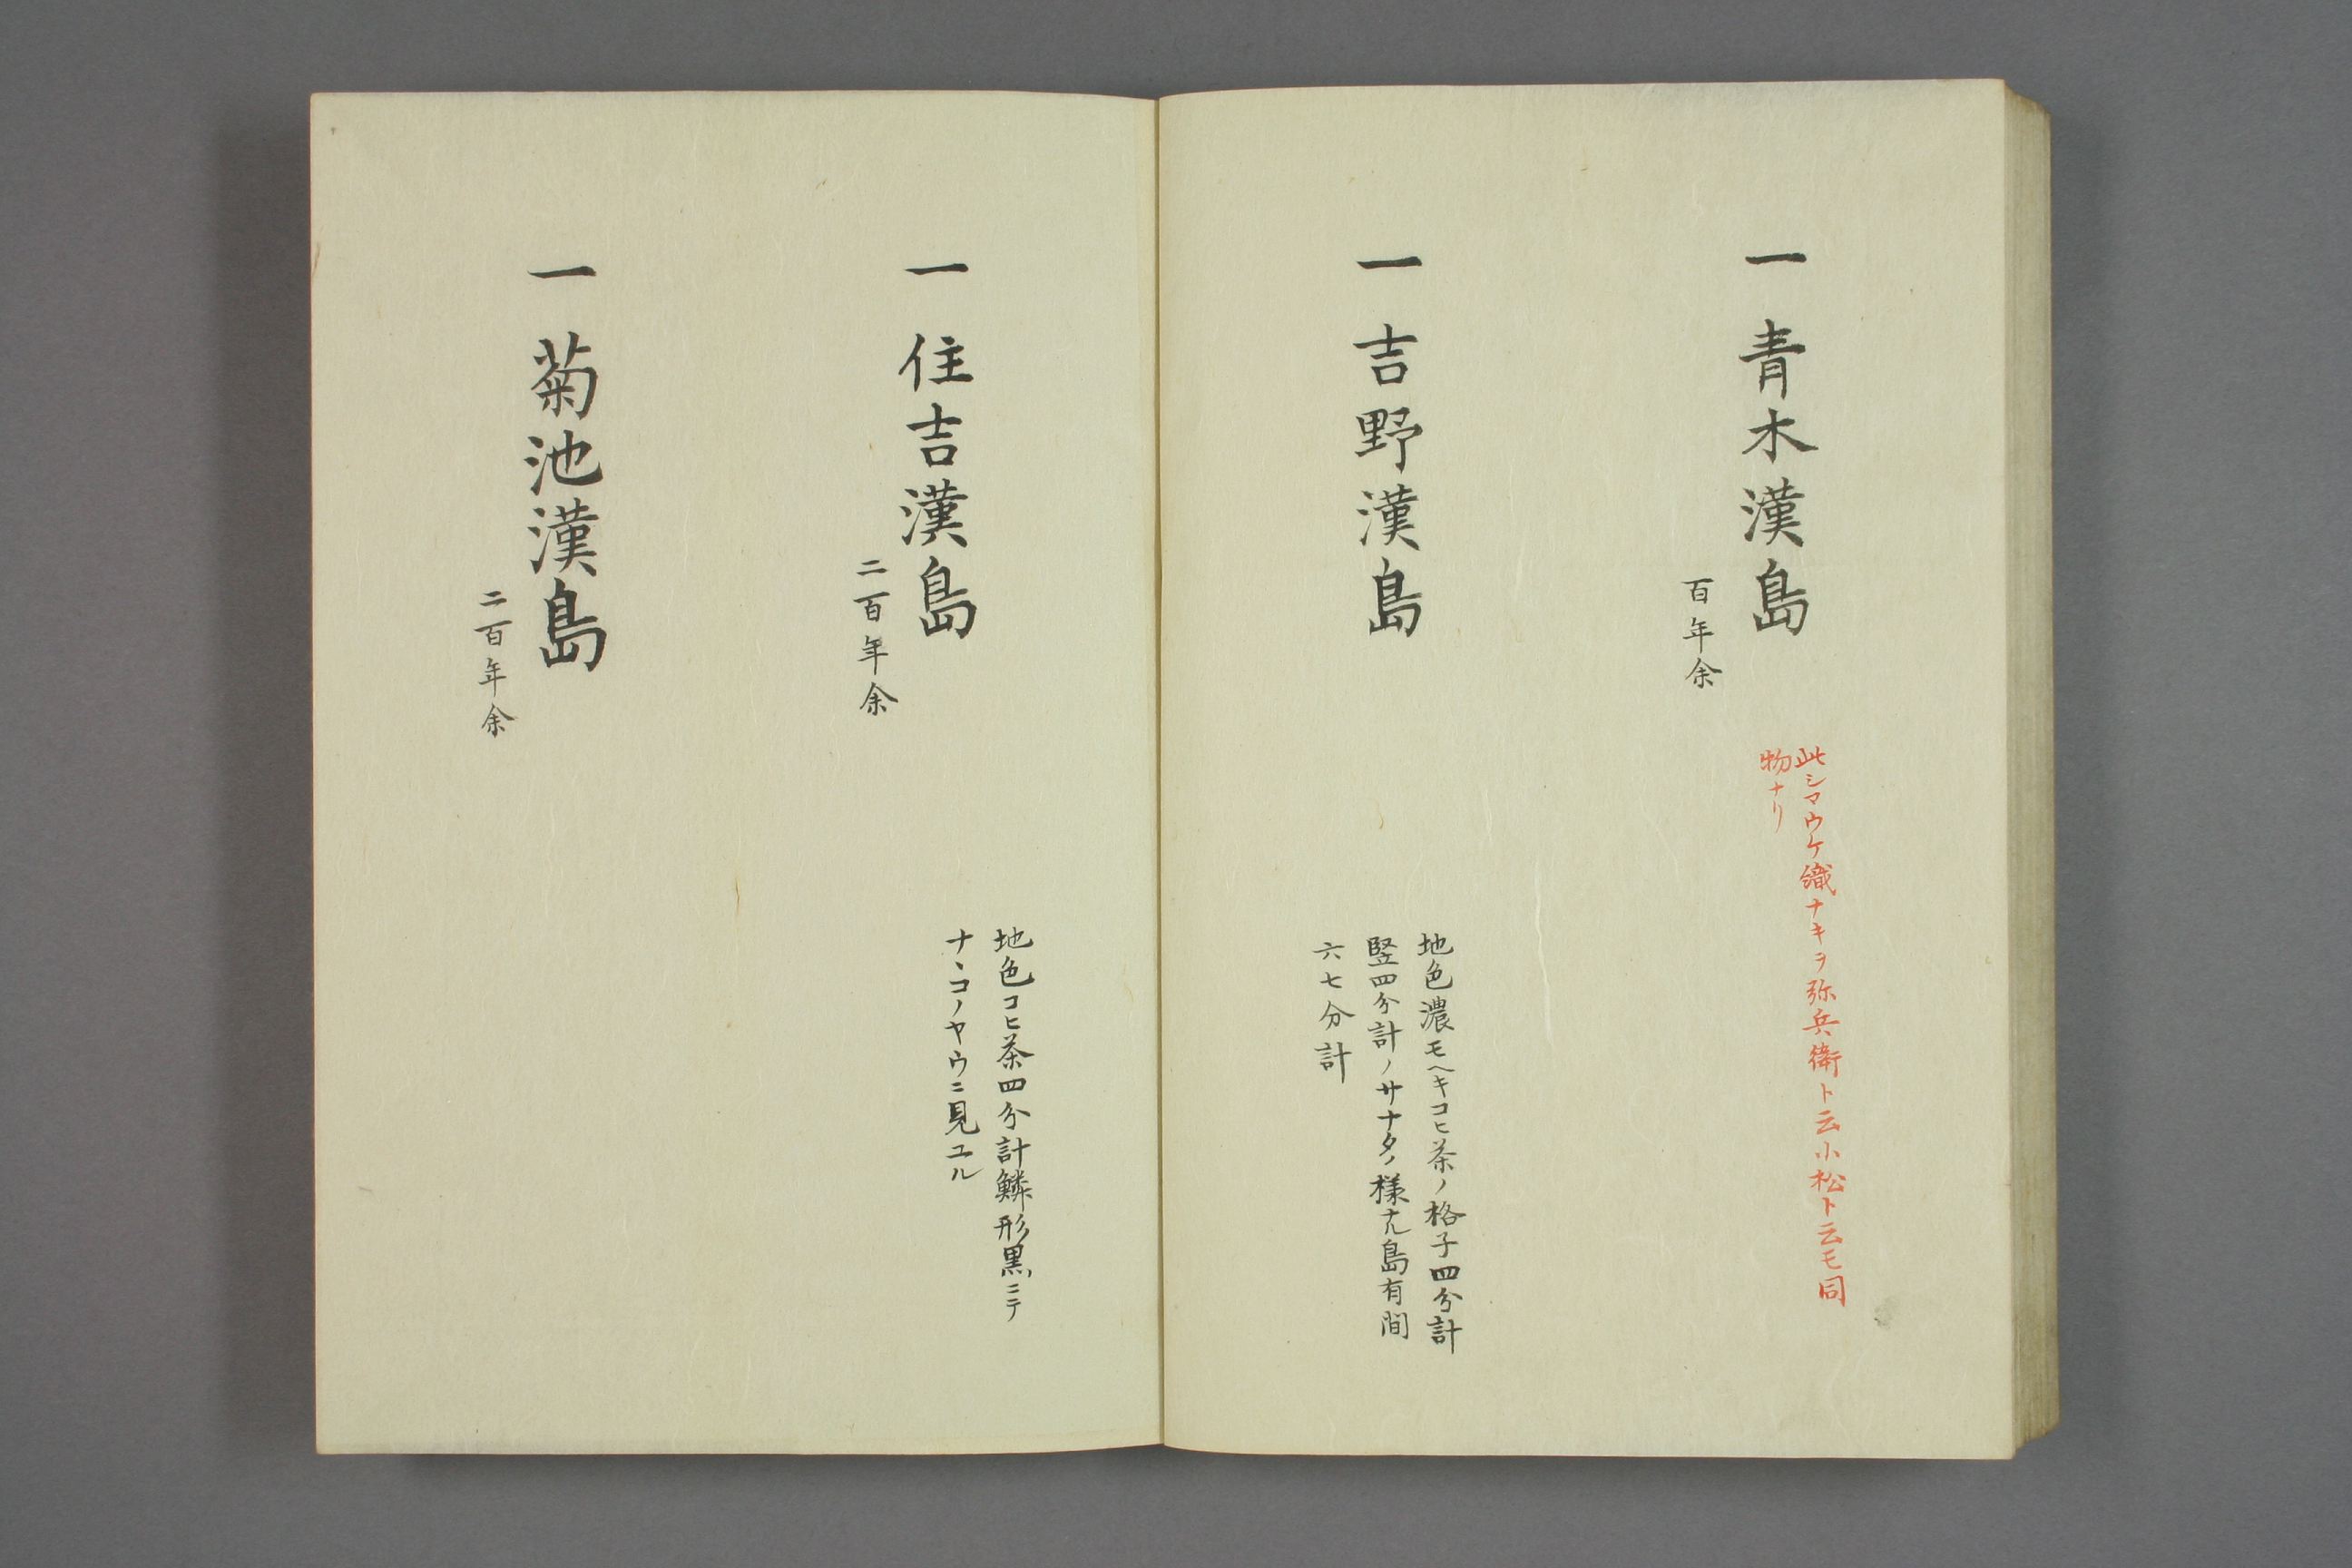 一青木漢島
百年余
此シマウケ織ナキヲ弥兵衛ト云小松ト云モ同
物ナリ
一吉野漢島
地色濃モヘキコヒ茶ノ格子四分計
竪四分計ノサナタノ様ナル島有間
六七分計
一住吉漢島
二百年余
地色コヒ茶四分計鱗形黒ニテ
ナヽコノヤウニ見ユル
一菊池漢島
二百年余